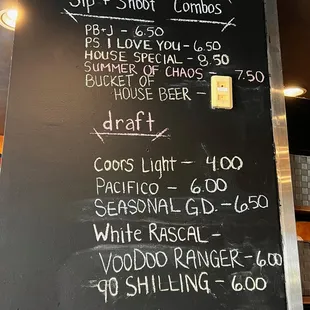 Sip + Shoot Combos
PB+J - 6.50
PS I LOVE YOU - 6.50
HOUSE SPECIAL - 8.50
SUMMER OF CHAOS - 7.50
BUCKET OF
HOUSE BEER -
draft
Coors Light - 4.00
PACIFICO - 6.00
SEASONAL G.D. - 6.50
White RASCAL -
VOODOO RANGER - 6.00
90 SHILLING - 6.00